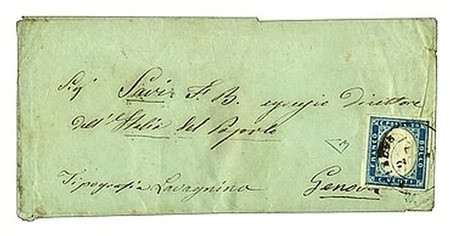 Sigr Savi F. B. egregio Direttore
dell'Italia del Popolo
Tipografia Lavagnino Genova
FRANCO
BOLLO
C. VENTI